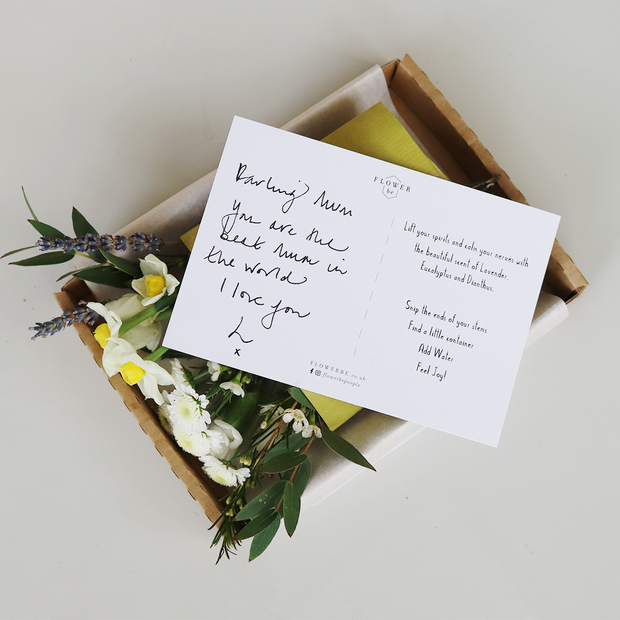 Darling Mum
You are the
Best Mum in
the world
I love you
L
x
FLOWER
be
Lift your spirits and calm your nerves with
the beautiful scent of Lavender,
Eucalyptus and Dianthus.
Snip the ends of your stems
Find a little container
Add Water
Feel Joy!
FLOWERBE.co.uk
flowerbepeople